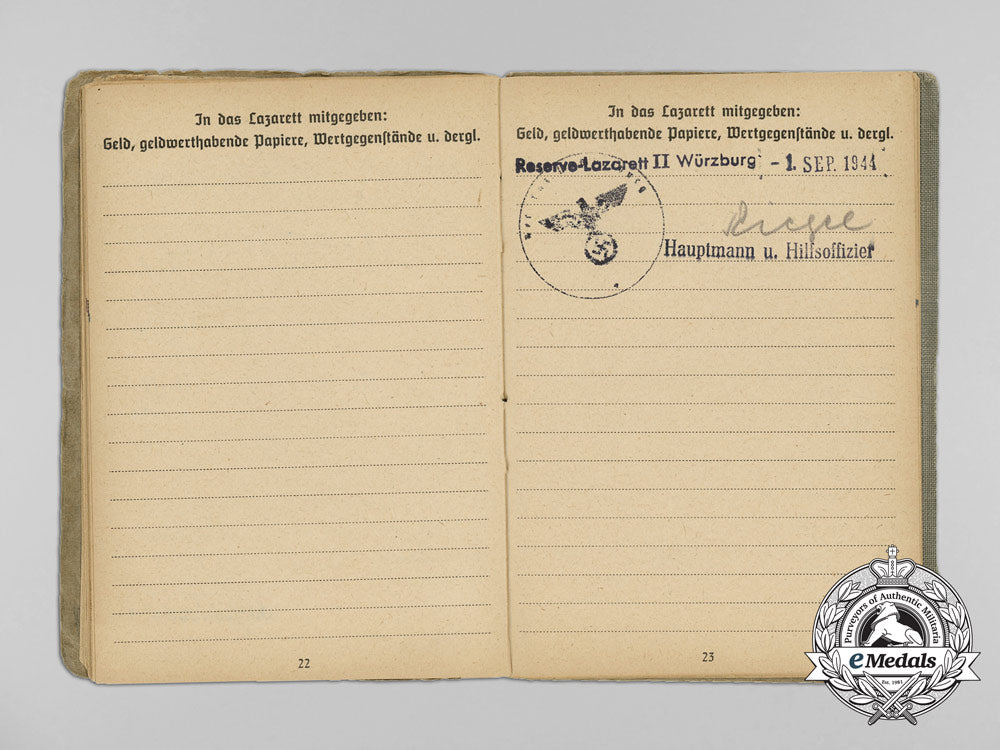 In das Lazarett mitgegeben:
Geld, geldwerthabende Papiere, Wertgegenstände u. dergl.
22
In das Lazarett mitgegeben:
Geld, geldwerthabende Papiere, Wertgegenstände u. dergl.
Reserve-Lazarett II Würzburg - 1. SEP. 1944
Hauptmann u. Hilfsoffizier
23
Purveyors of Authentic Militaria
eMedals
Est. 1981